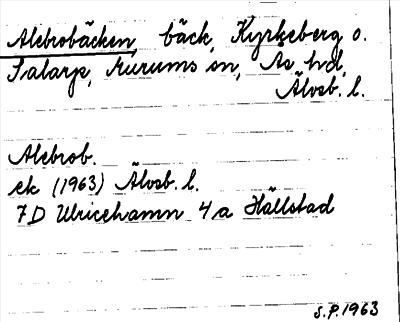 Alebrobäcken, bäck, Kyrkeberg o.
Salarp, Murums sn, Ås hd,
Älvsb. l.
Alebrob.
ek (1963) Älvsb. l.
7D Ulricehamn 4a Hällstad
S.P. 1963